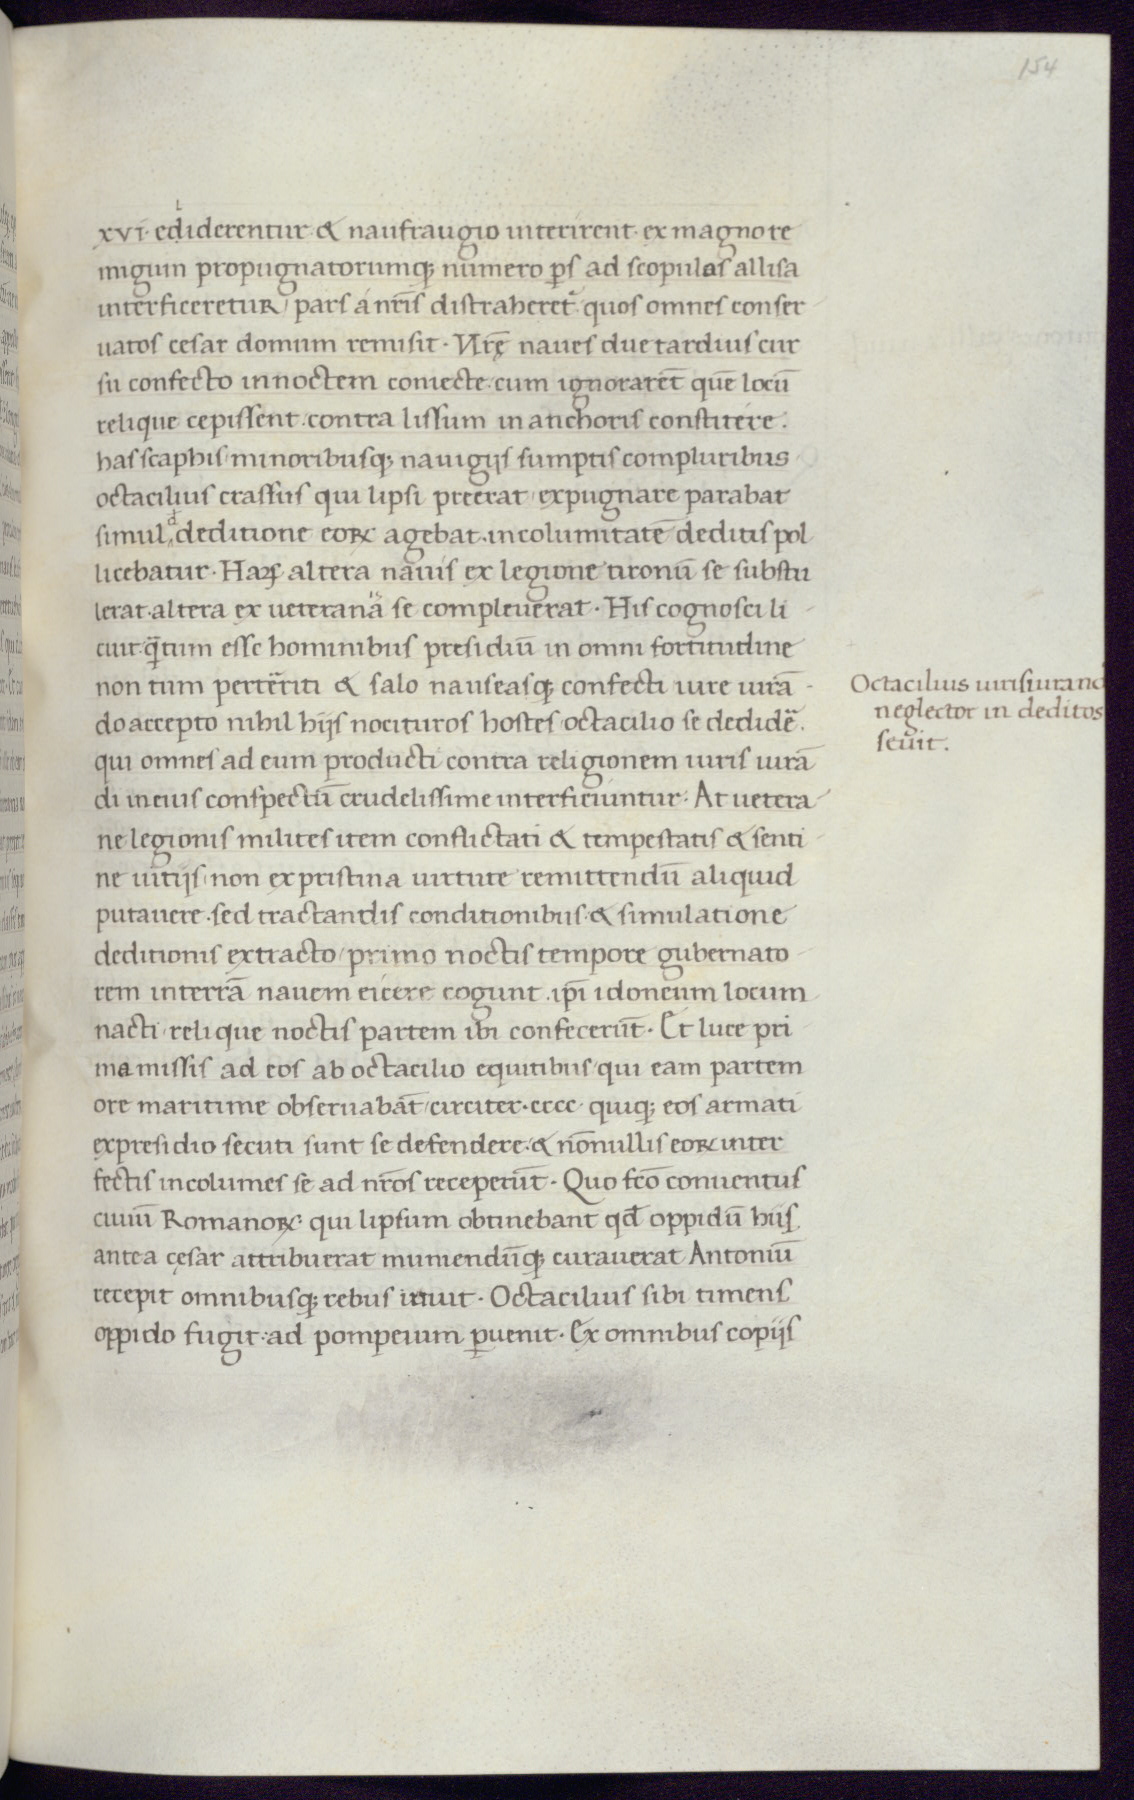 154
xvi· edliderentur & naufraugio interirent· ex magno re
migum propugnatorumq; numero ꝑs ad scopulas allisa
interficeretur / pars a nr̄is distraheret᷑ quos omnes conser
uatos cesar domum remisit· Nr̄ę naues due tardius cur
su confecto in noctem coniecte· cum ignorarēt quē locū
relique cepissent· contra lissum in anchoris constitere·
has scaphis minoribusq; nauigijs sumptis compluribus
octacilius crassus qui lipsi preerat expugnare parabat
simul d̾ deditione eoꝝ agebat· incolumitatē deditis pol
licebatur· Haꝝ altera nauis ex legione tironū se substu
lerat· altera ex ueterana ii se compleuerat· His cognosci li
cuit q̄tum esse hominibus presidiū in omni fortitudine
non tum perterriti & salo nauseasq; confecti iure iurā
do accepto nihil hijs nocituros hostes octacilio se dedidēr·
qui omnes ad eum producti contra religionem iuris iurā
di in eius conspectū crudelissime interficiuntur· At uetera
ne legionis milites item conflictati & tempestatis & senti
ne uitijs / non ex pristina uirtute remittendū aliquid
putauere· sed tractandis conditionibus & simulatione
deditionis extracto / primo noctis tempore gubernato
rem in terrā nauem eicere cogunt· ip̄i idoneum locum
nacti / relique noctis partem ibi confecerūt· Et luce pri
ma missis ad eos ab octacilio equitibus / qui eam partem
ore maritime obseruabāt / circiter· cccc· quiq; eos armati
ex presidio secuti sunt se defendere· & nōnullis eoꝝ inter
fectis incolumes se ad nr̄os receperūt· Quo fc̄o conuentus
ciuiū Romanoꝝ· qui lipsum obtinebant qd̄ oppidū hijs
antea cęsar attribuerat muniendūq; curauerat Antoniū
recepit omnibusq; rebus iuuit· Octacilius sibi timens
oppido fugit· ad pompeium ꝑuenit· Ex omnibus copijs
Octacilius iurisiurandi
neglector in deditos
seuit.